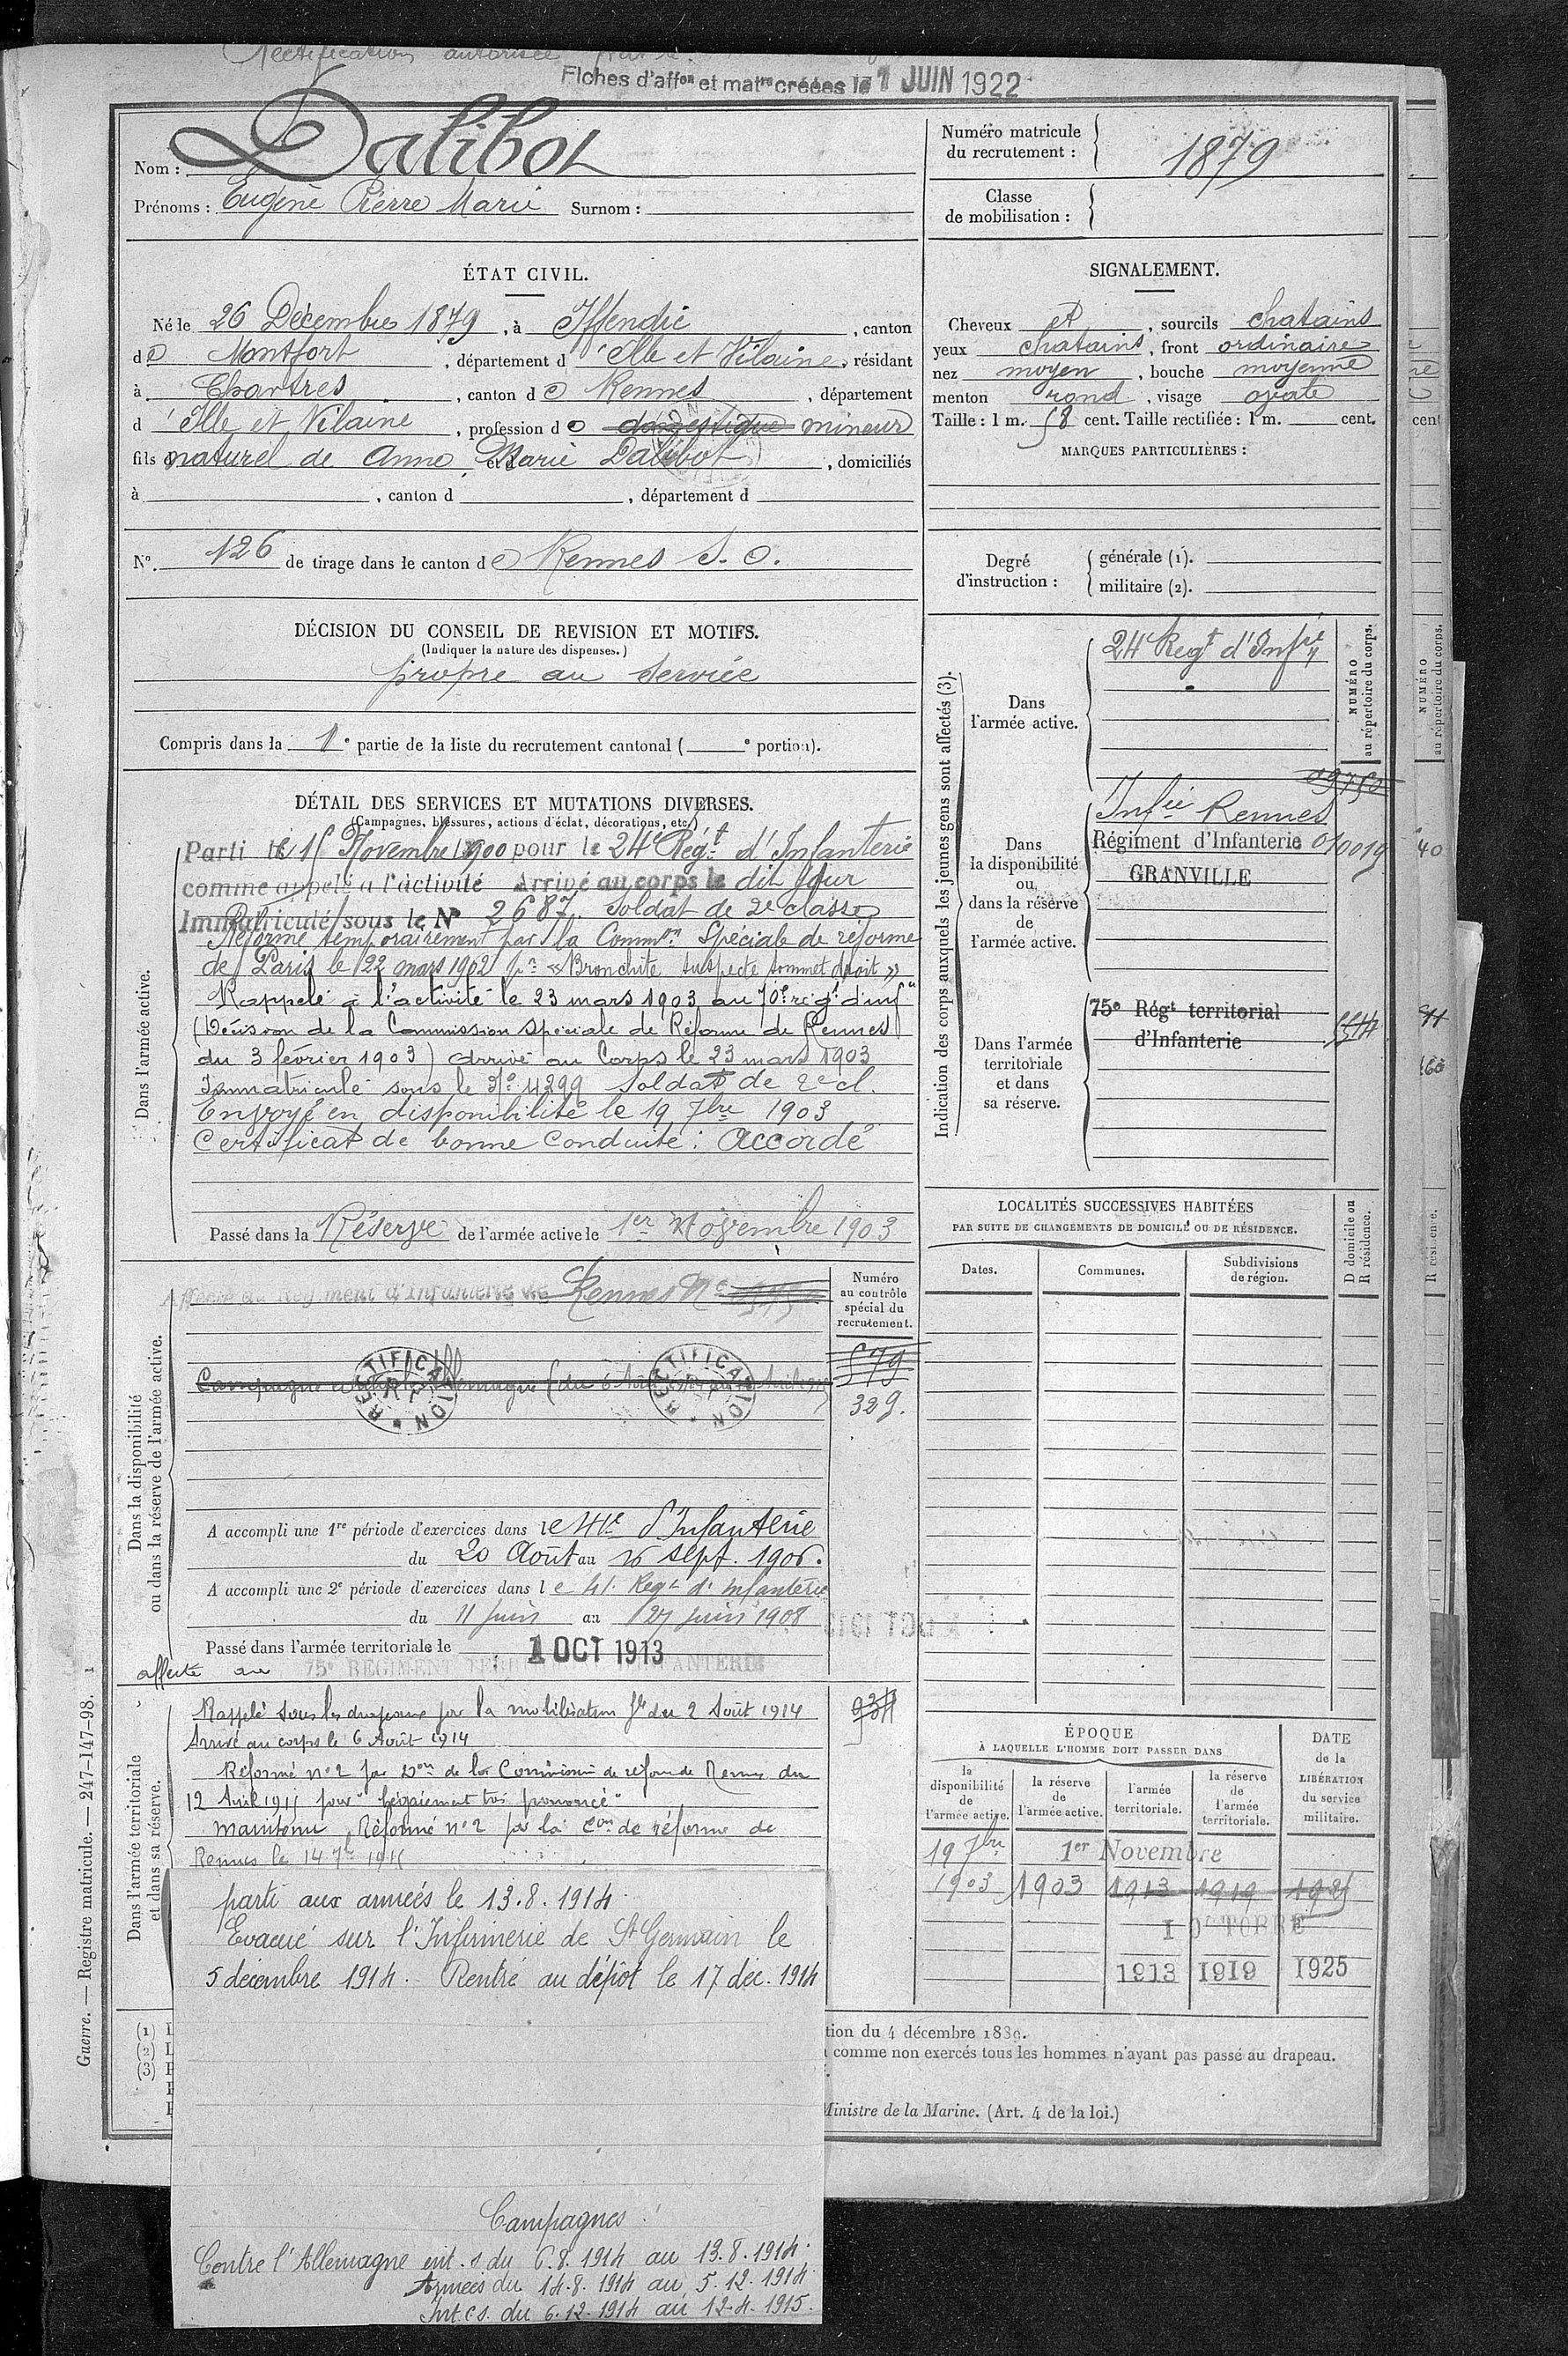 Rectification autorisée
Fiches d'affon et matre créées le 1 JUIN 1922
Nom : Dalibot
Prénoms : Eugène Pierre Marie Surnom :
Numéro matricule du recrutement : 1879
Classe de mobilisation :
ÉTAT CIVIL.
Né le 26 Décembre 1879, à Iffendic, canton
de Montfort, département d'Ille et Vilaine, résidant
à Chartres, canton de Rennes, département
d'Ille et Vilaine, profession de domestique mineur
fils naturel de Anne Marie Dalibot, domiciliés
à , canton d , département d
No. 126 de tirage dans le canton de Rennes S.O.
SIGNALEMENT.
Cheveux et, sourcils chatains
yeux chatains, front ordinaire
nez moyen, bouche moyenne
menton rond, visage ovale
Taille : 1 m. 58 cent. Taille rectifiée : 1 m. cent.
MARQUES PARTICULIÈRES :
Degré d'instruction : générale (1).
militaire (2).
DÉCISION DU CONSEIL DE REVISION ET MOTIFS.
(Indiquer la nature des dispenses.)
propre au service
Compris dans la 1e partie de la liste du recrutement cantonal ( e portion).
DÉTAIL DES SERVICES ET MUTATIONS DIVERSES.
(Campagnes, blessures, actions d'éclat, décorations, etc.)
Dans l'armée active.
Parti le 15 Novembre 1900 pour le 24e Régt d'Infanterie
comme appelé à l'activité Arrivé au corps le dit jour
Immatriculé sous le No 2687. Soldat de 2e classe
Réformé temporairement par la Common Spéciale de réforme
de Paris le 22 mars 1902 pr « Bronchite suspecte sommet droit »
Rappelé à l'activité le 23 mars 1903 au 70e régt d'inf
(Décision de la Commission spéciale de Réforme de Rennes
du 3 février 1903) arrivé au Corps le 23 mars 1903
Immatriculé sous le No 4299 Soldat de 2e cl.
Envoyé en disponibilité le 19 7bre 1903
Certificat de bonne conduite : Accordé
Passé dans la Réserve de l'armée active le 1er Novembre 1903
Indication des corps auxquels les jeunes gens sont affectés (3).
NUMÉRO au répertoire du corps.
Dans l'armée active.
24e Régt d'Infie
Dans la disponibilité ou dans la réserve de l'armée active.
Infie Rennes
Régiment d'Infanterie 010019
GRANVILLE
Dans l'armée territoriale et dans sa réserve.
75e Régt territorial
d'Infanterie
LOCALITÉS SUCCESSIVES HABITÉES
PAR SUITE DE CHANGEMENTS DE DOMICILE OU DE RÉSIDENCE.
Dates. Communes. Subdivisions de région. D domicile ou R résidence.
Dans la disponibilité ou dans la réserve de l'armée active.
Affecté au Régiment d'Infanterie de Rennes No
Numéro au contrôle spécial du recrutement.
579
329.
RECTIFICATION
RECTIFICATION
A accompli une 1re période d'exercices dans le 41e d'Infanterie
du 20 Août au 16 sept. 1906.
A accompli une 2e période d'exercices dans le 41. Regt d'infanterie
du 11 juin au 27 juin 1908
Passé dans l'armée territoriale le 1 OCT 1913
affecté au 75e RÉGIMENT TERRITORIAL D'INFANTERIE
Dans l'armée territoriale et dans sa réserve.
Rappelé sous les drapeaux par la mobilisation gle du 2 Août 1914
Arrivé au corps le 6 Août 1914
Réformé no 2 par Don de la Commission de réforme de Rennes du
12 Avril 1915 pour "bégaiement très prononcé"
maintenu Réformé no 2 par la Con de réforme de
Rennes le 14 7bre 1915
parti aux armées le 13.8.1914
Evacué sur l'Infirmerie de St Germain le
5 décembre 1914. Rentré au dépôt le 17 déc. 1914
Campagnes :
Contre l'Allemagne int. s du 6.8.1914 au 13.8.1914.
Armées du 14.8.1914 au 5.12.1914
Int. c.s. du 6.12.1914 au 12.4.1915.
ÉPOQUE
À LAQUELLE L'HOMME DOIT PASSER DANS
la disponibilité de l'armée active. la réserve de l'armée active. l'armée territoriale. la réserve de l'armée territoriale.
DATE de la LIBÉRATION du service militaire.
19 7bre 1er Novembre
1903 1903 1913 1919 1925
1 OCTOBRE
1913 1919 1925
(1)
(2)
(3)
tion du 4 décembre 1889.
comme non exercés tous les hommes n'ayant pas passé au drapeau.
Ministre de la Marine. (Art. 4 de la loi.)
Guerre. — Registre matricule. — 247-147-98.